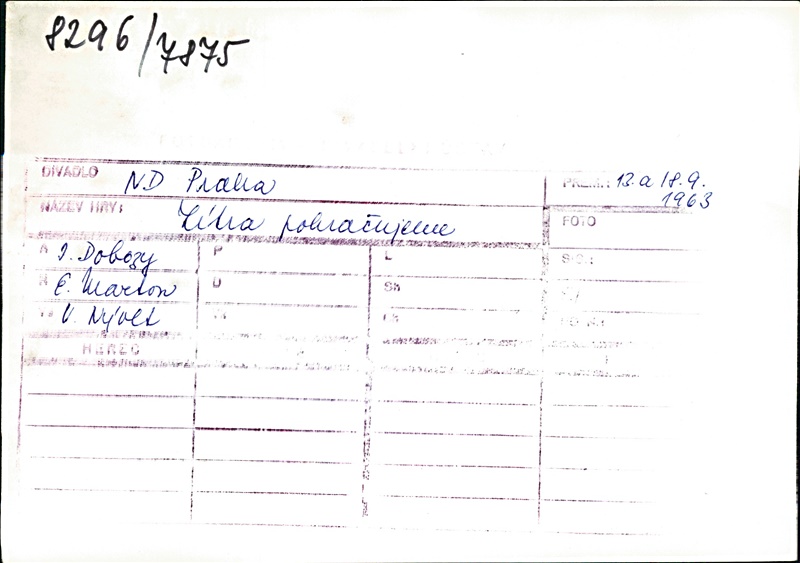 8296/7875
DIVADLO ND Praha PREM. 13. a 18. 9.
1963
NÁZEV HRY: Zítra pokračujeme FOTO
A I. Dobozy P L
E. Marton D Sh
V. Nývlt
HEREC